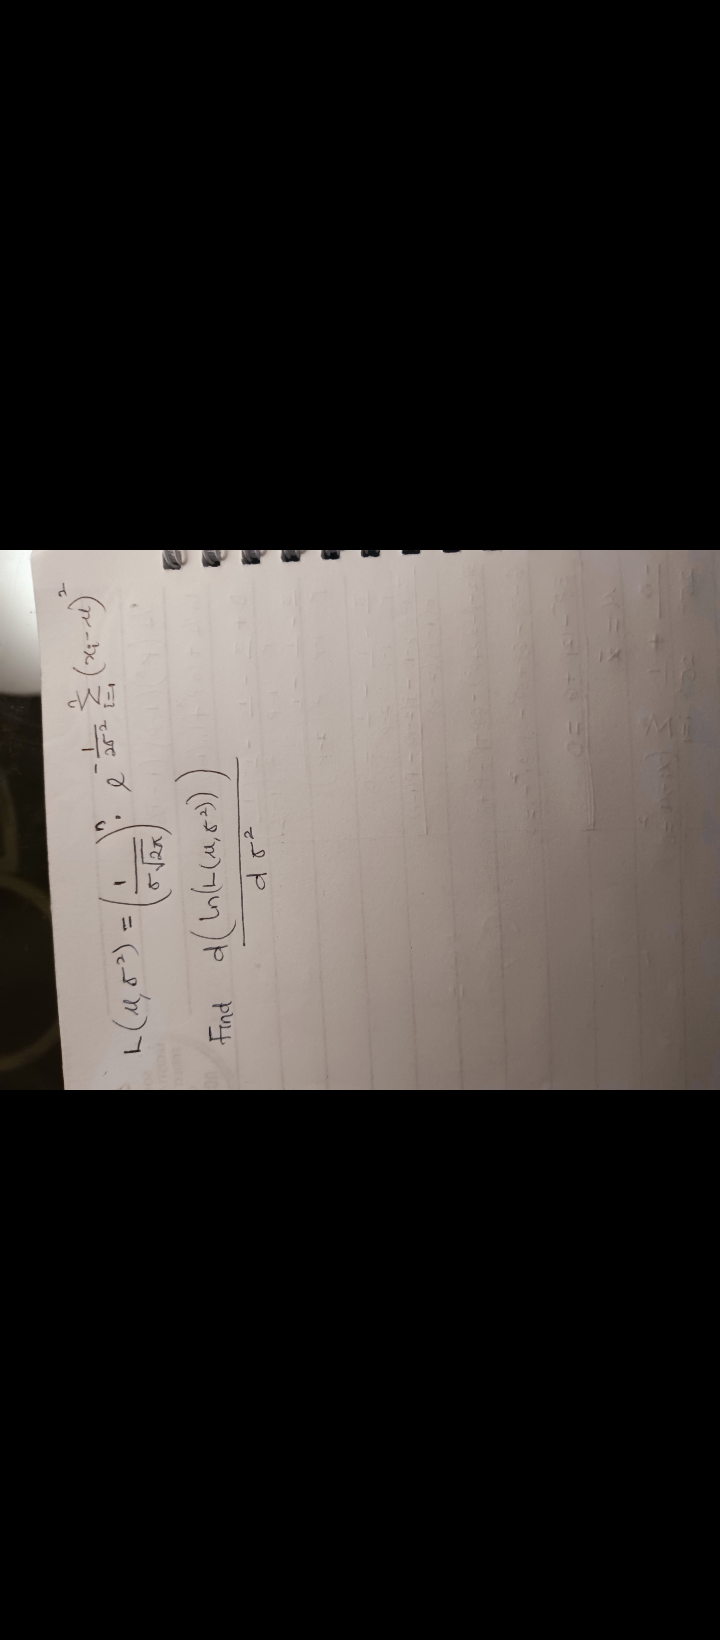 L(μ, σ²) = (1/(σ√2π))ⁿ · e^(-1/(2σ²) Σ_{i=1}^{n} (xᵢ-μ)²) .
Find d(ln(L(μ, σ²)))/dσ²